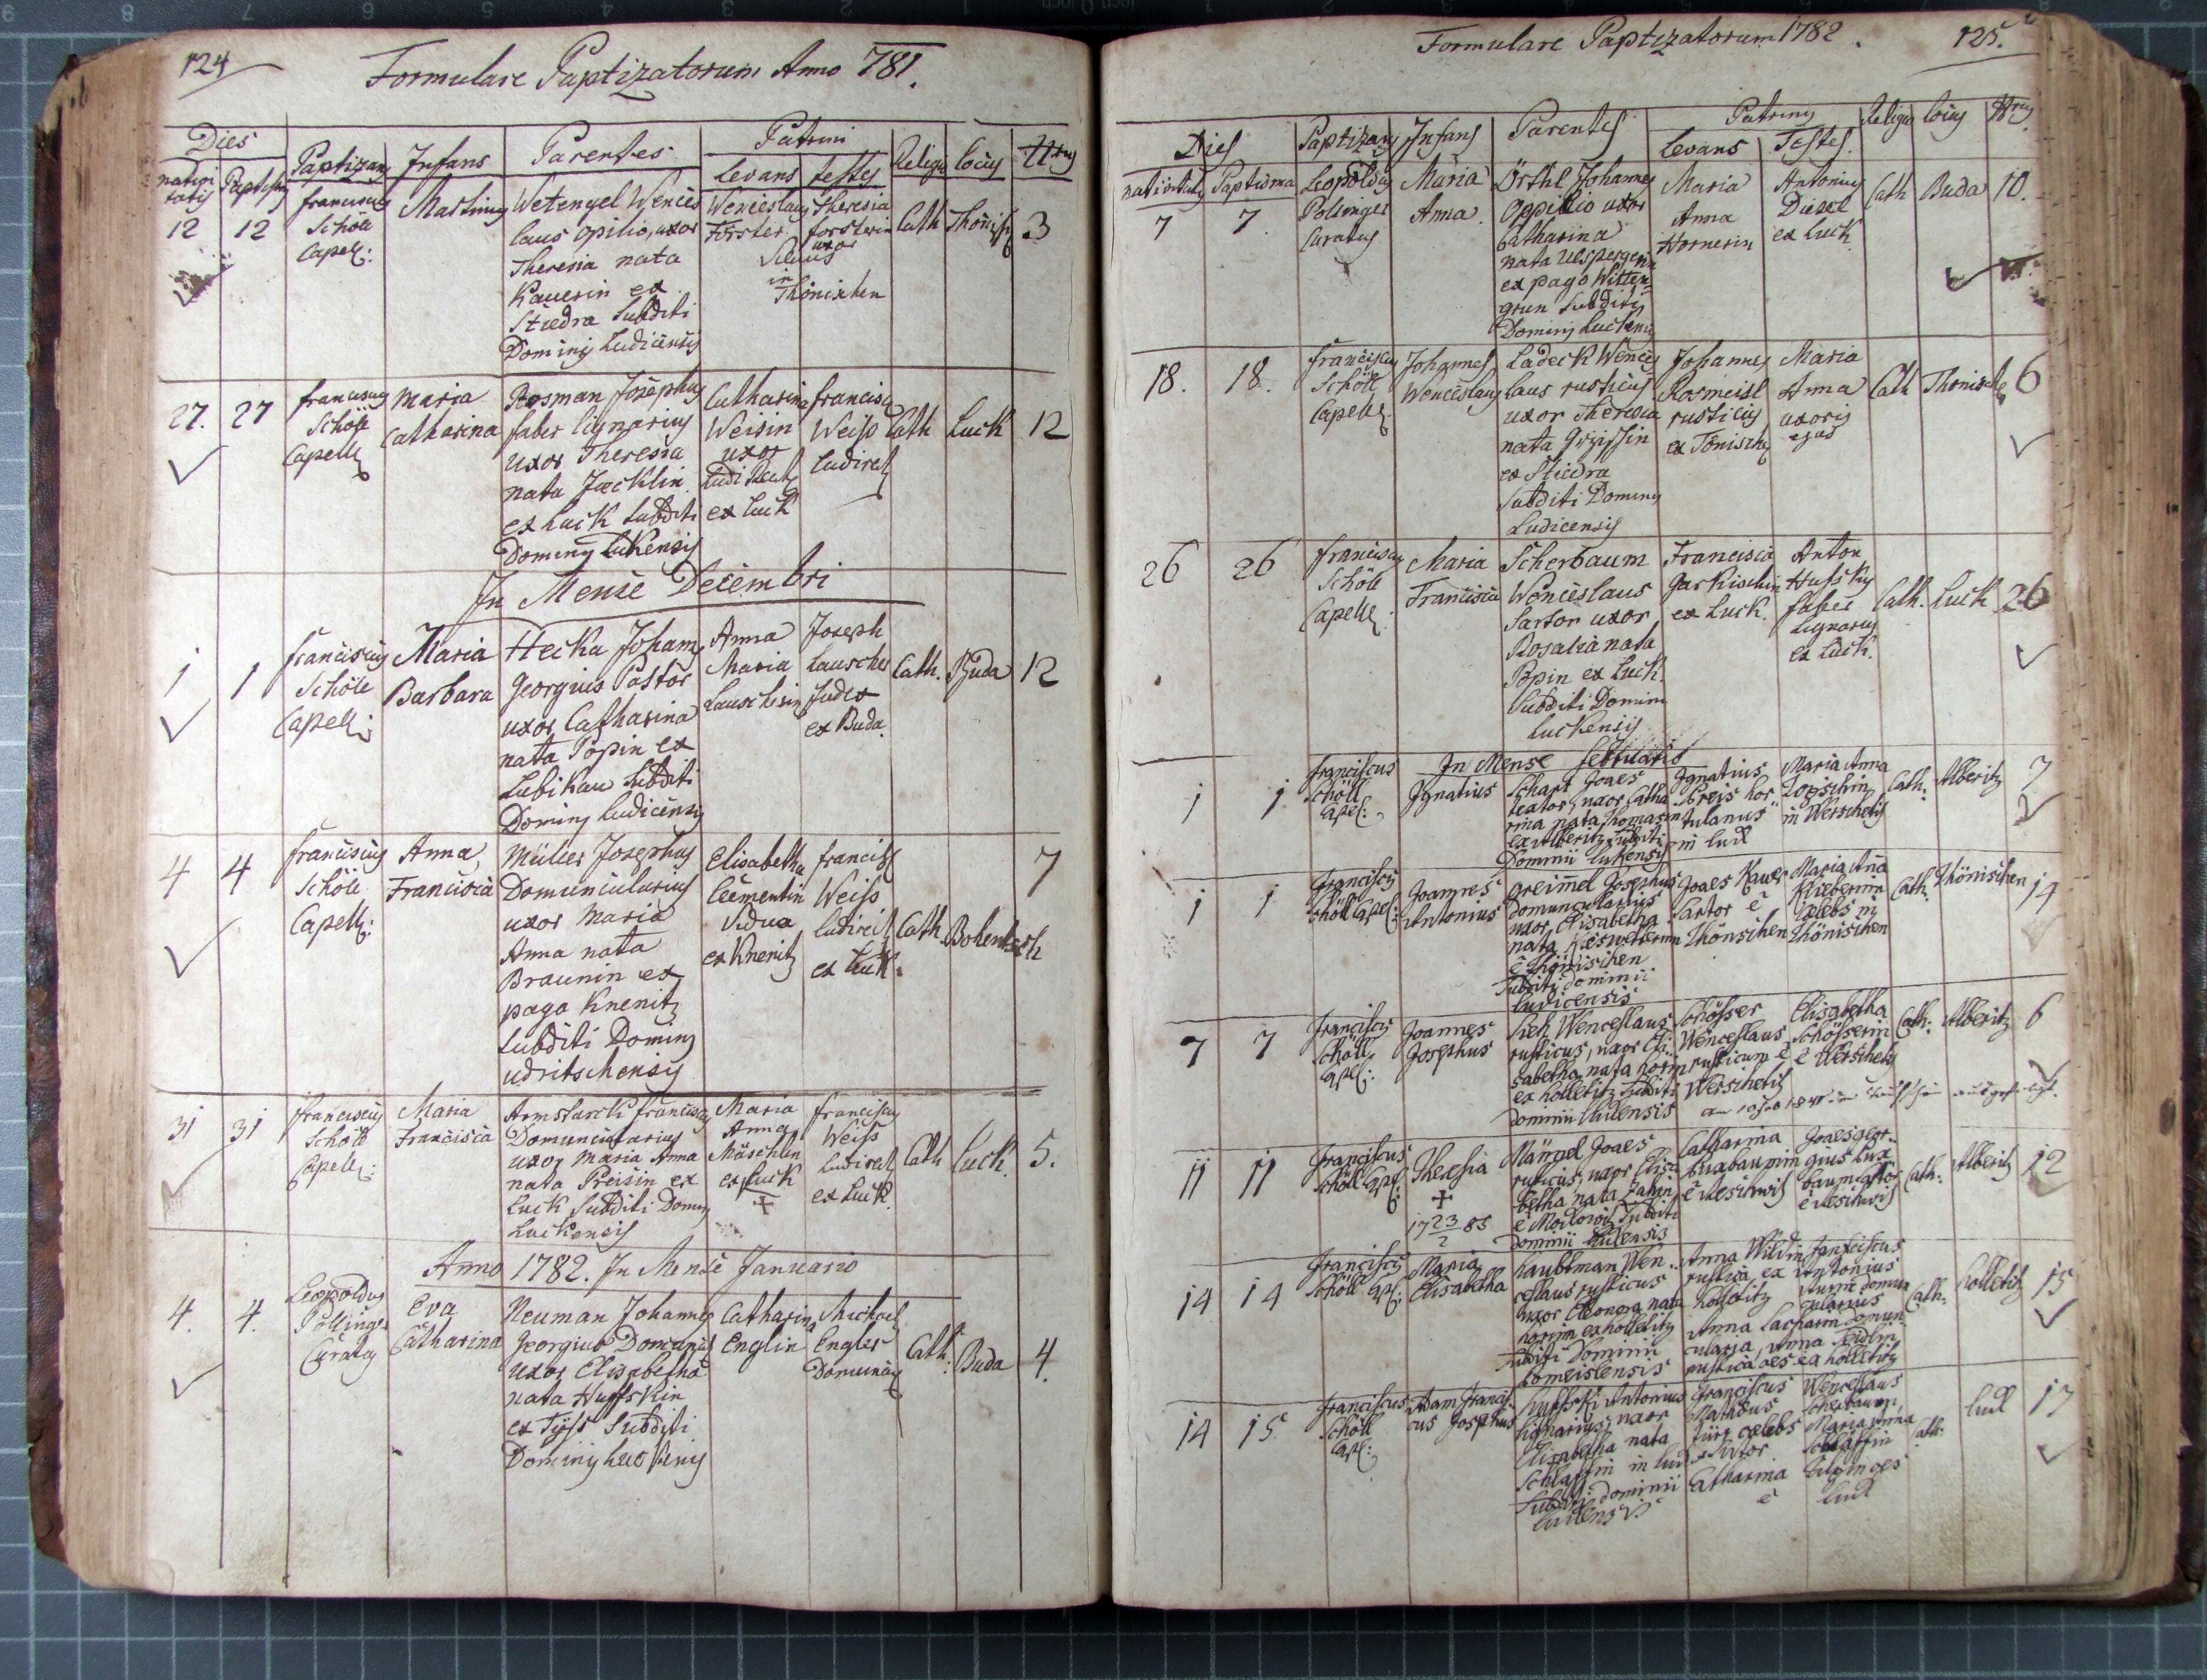 124
Formulare Paptizatorum Anno 781.
Dies
Paptizans
Infans
Parentes
Patrini
Levans testes
Religio
locus
Nrus
12 12 franciscus Schöll Capell:
Martinus
Wetengel Wences
laus opilio, uxor
Theresia nata
Kauerin ex
Stiedra Subditi
Dominij Ludicensis
Wenceslaus Förster
Theresia forsterin uxor
in Thönischen
Cath Thönisch 3
27. 27 franciscus Schöll Capell
Maria Catharina
Rosman Josephus
faber lignarius
uxor Theresia
nata Jæcklin
ex Luck Subditi
Dominij Lukensis
Catharina Weisin uxor Ludi Rect ex Luck
francisc Weiss Ludirect
Cath Luck 12
In Mense Decembri
1 1 franciscus Schöll Capell:
Maria Barbara
Hecka Johann
Georgius Pastor
uxor Catharina
nata Popin ex
Lubikau Subditi
Dominij Ludicensis
Anna Maria Lauscherin
Joseph Lauscher Judex ex Buda.
Cath. Buda 12
4 4 franciscus Schöll Capell:
Anna Francisca
Müller Josephus
Domuncularius
uxor Maria
Anna nata
Braunin ex
pago Knenitz
Subditi Dominij
udritschensis
Elisabetha Clementin Vidua ex Knenitz
francisc Weiss Ludirect ex Luck.
Cath Bohentsch 7
31 31 franciscus Schöll Capell:
Maria Francisca
Armstarck franciscus
Domuncularius
uxor Maria Anna
nata Preisin ex
Luck Subditi Dominij
Luckensis
Maria Anna Mäschlin ex Luck
franciscus Weiss Ludirect ex Luck.
Cath Luck 5.
Anno 1782. In Mense Januario
4. 4. Leopoldus Pöllinger Curatus
Eva Catharina
Neuman Johannes
Georgius
uxor Elisabetha
nata Huffskin
ex Tyss Subditi
Dominij
Catharina Englin
Michael Engler
Cath: Buda 4.
Formulare Paptizatorum 1782.
125.
Dies
Paptizans
Infans
Parentes
Patrinus
Levans Testes.
Religio
locus
Nrus
nativitatis Paptisma
7 7. Leopoldus Polinger Curatus
Maria Anna
Örthl Johannes
Oppilio uxor
Catharina
nata
ex pago Witten
grun Subditi
Dominij Luckensis
Maria Anna Hornerin
Antonius Diezel ex Luck
Cath Buda 10.
18. 18. franciscus Schöll Capell
Johannes Wenceslaus
Ladeck Wences
laus rusticus
uxor Theresia
nata
ex Stiedra
Subditi Dominij
Ludicensis
Johannes Rosmeisl rusticus ex Tönisch
Maria Anna uxoris ejus
Cath Thonische 6
26 26 franciscus Schöll Capell
Maria Francisca
Scherbaum
Wenceslaus
Sartor uxor
Rosalia nata
Popin ex Luck
Subditi Domini
Luckensis
Francisca Garkischin ex Luck.
Anton Hufsky faber Lignarius ex Luck.
Cath. Luck 26
In Mense februario
1 1 franciscus Schöll Capel:
Ignatius
Schart Joaes
textor, uxor Catha
rina nata Thomasin
ex Alberitz Subditi
Dominii Lukensis
Ignatius Preis hor
tulanus in Luck
Maria Anna Zogschin in Werschetitz
Cath. Alberitz 7
1 1 franciscus Schöll Capel:
Joannes Antonius
Greiml Josephus
domuncularius
uxor, Elisabetha
nata
è Thönischen
Subditi dominii
Ludicensis
Joaes Kauer Sartor è Thönschen
Maria Aña Klieberinn cælebs in Thönischen
Cath. Thönischen 14
7 7 franciscus Schöll Capel:
Joannes Josephus
Wenceslaus
rusticus, uxor Eli
sabetha nata
ex Kolletitz Subditi
dominii Lukensis
Schösser Wenceslaus rusticum è Werschetitz
Elisabetha Schösserin è Werschetitz
Cath: Alberitz 6
11 11 franciscus Schöll Capel:
Theresia
1723/2 85
Mängel Joaes
rusticus, uxor Elisa
betha nata Zahin
Subditi
dominii Lukensis
Catharina Buxbaumin
Joaes Geor
gius Bux
baum
Cath: Alberitz 12
14 14 franciscus Schöll Capl:
Maria Elisabetha
Kaubtman Wen
ceslaus rusticus
uxor Eleonora nata
ex Kolletitz
Subditi Dominii
Anna Wildin rustica ex Kolletitz
Franciscus Antonius
Anna
rustica oes ex Kolletitz
Cath: Kolletitz 15
14 15 franciscus Schöll Capl:
Adam Francis
cus Josephus
Huffski Antonius
lignarius, uxor
Elisabetha nata
Schlaffin in Luck
Subditi: dominii
Lukensis
Franciscus Mathæus cælebs Sutor Catharina è
Wenceslaus Scherbaum, Maria Anna Schlaffin
oes Luck
Cath: Luck 17